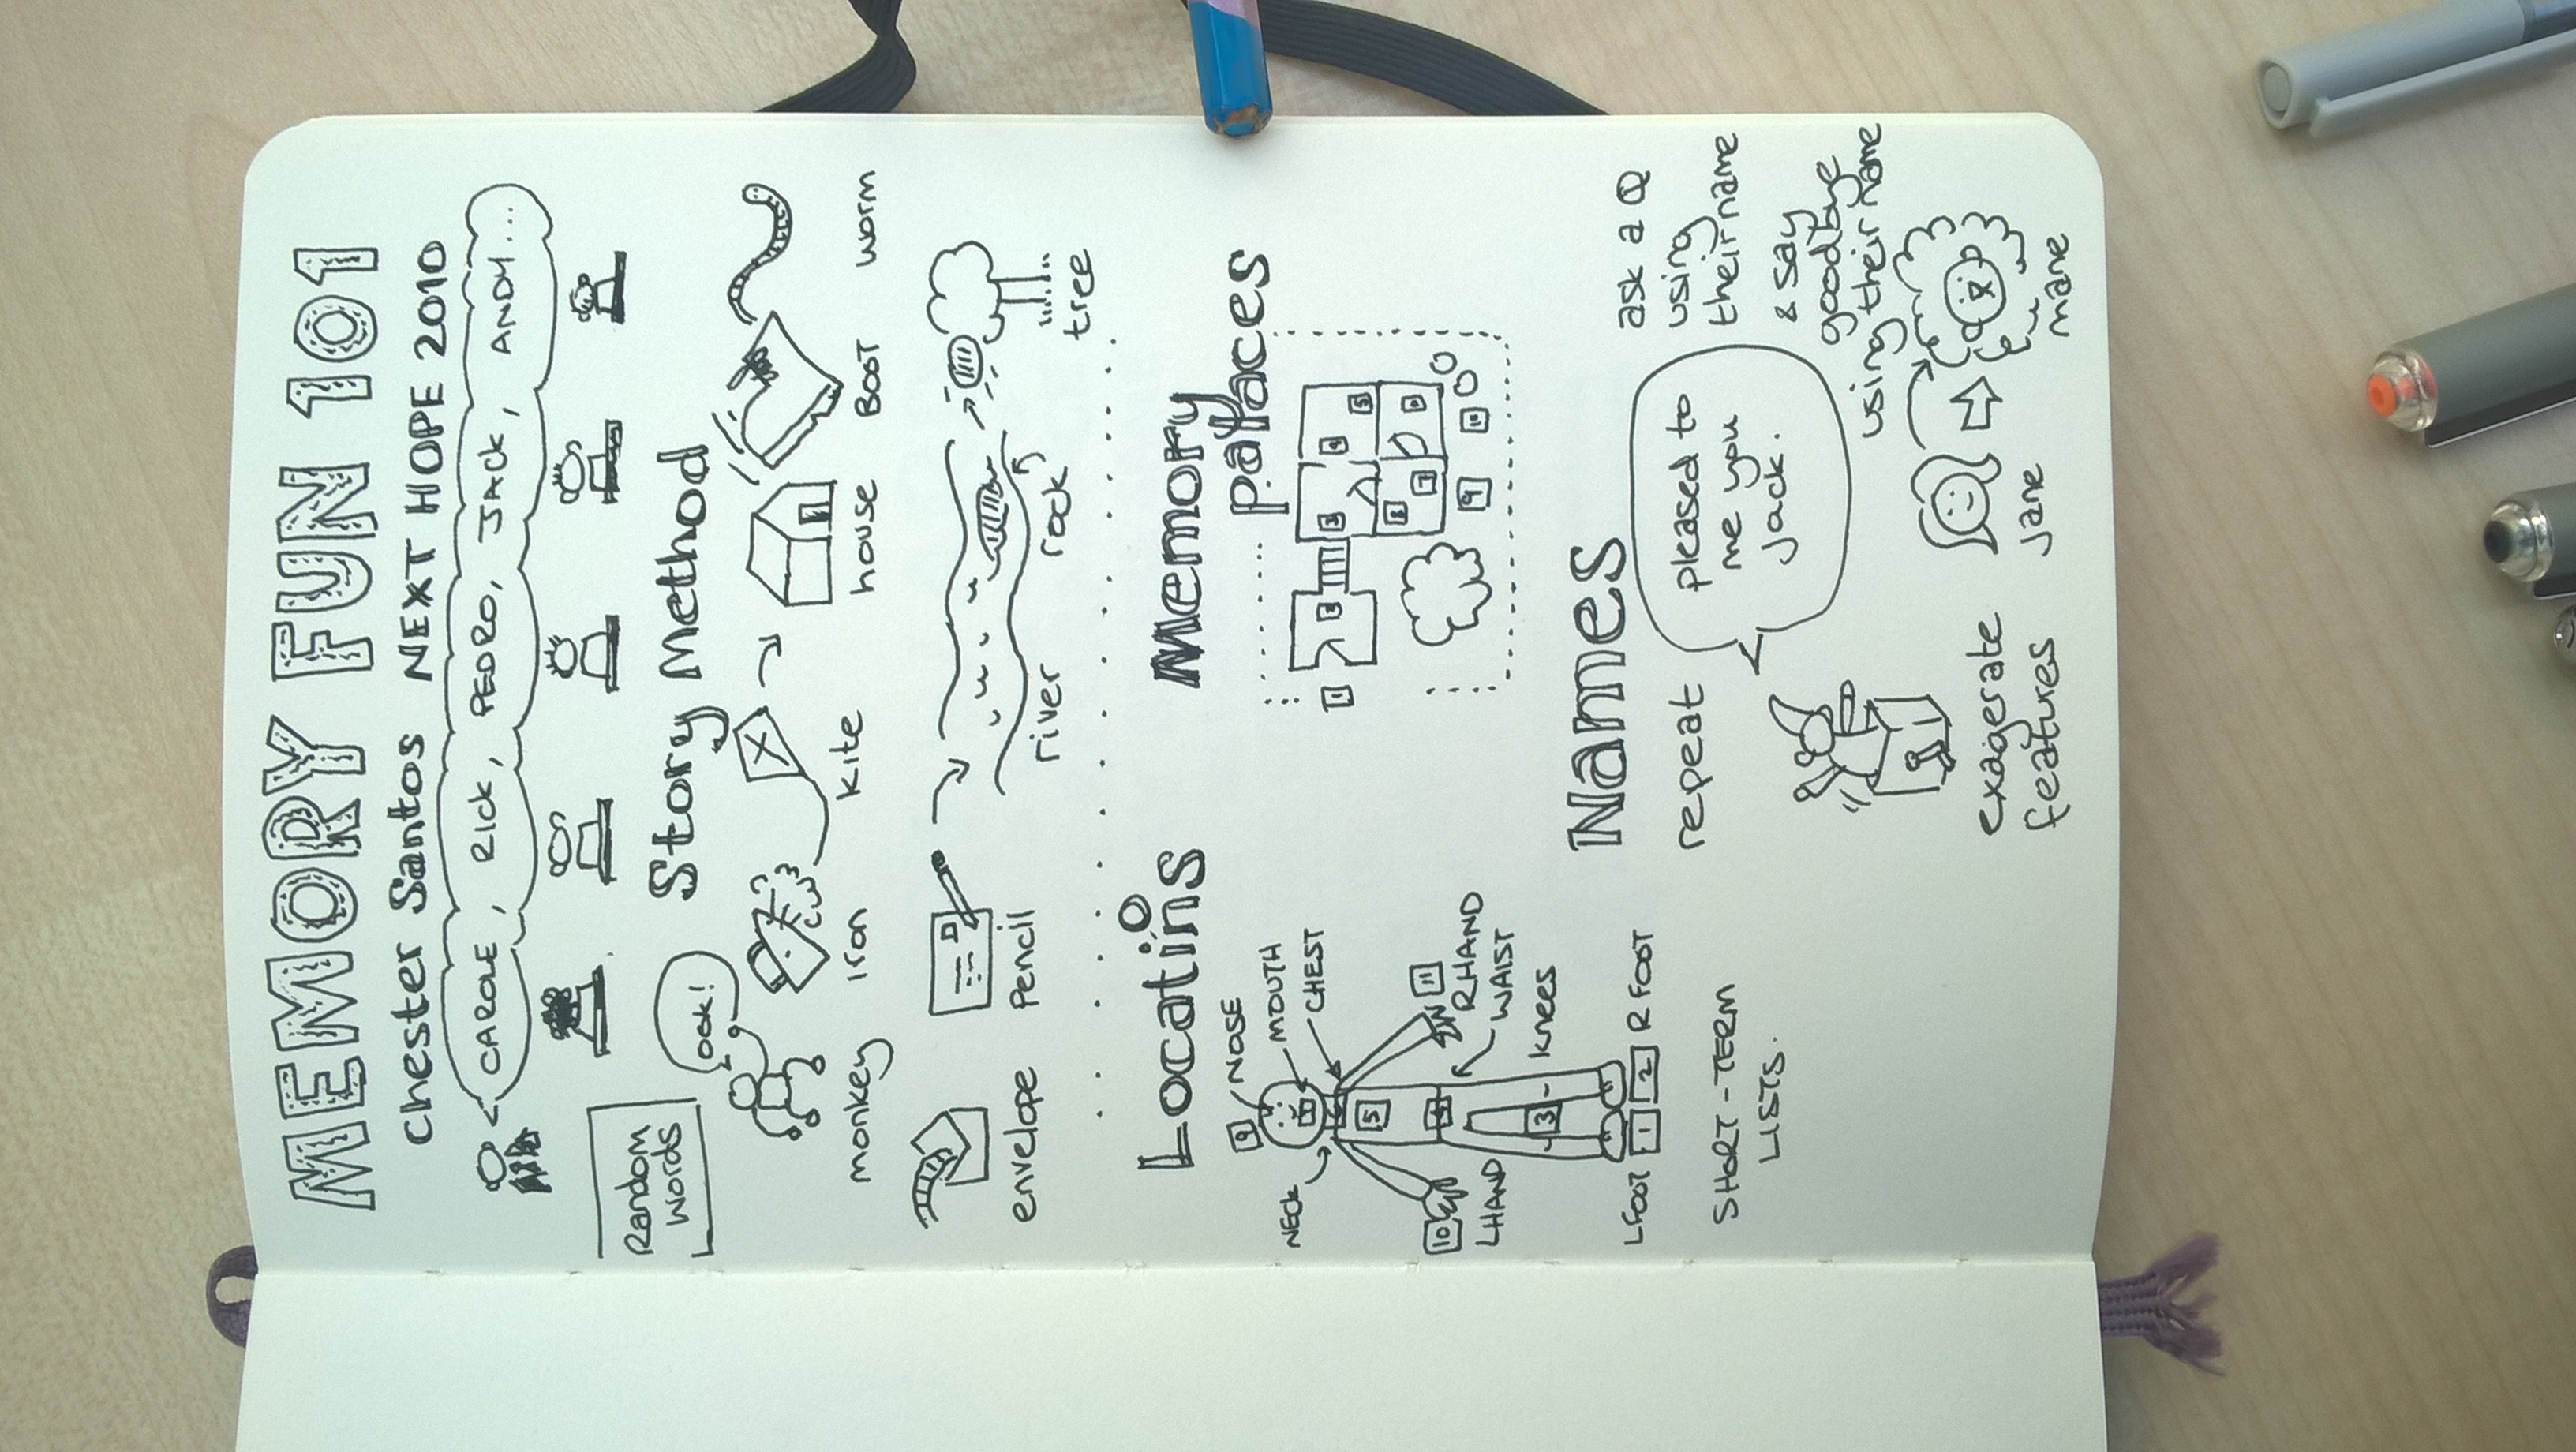 MEMORY FUN 101
Chester Santos NEXT HOPE 2010
CAROLE, RICK, PEDRO, JACK, ANDY...
Random
words
Story Method
ook!
monkey iron kite house BOOT worm
envelope pencil river rock tree
Locatins
o
9 NOSE
NECK MOUTH
CHEST
5
10 11
LHAND RHAND
4 WAIST
3 knees
LFOOT 1 2 R FOOT
SHORT-TERM
LISTS.
Memory
palaces
1 2 3 4
5
7
9 10
Names
repeat
pleased to
me you
Jack.
ask a Q
using
their name
& say
goodbye
using their name
exagerate
features
Jane
mane